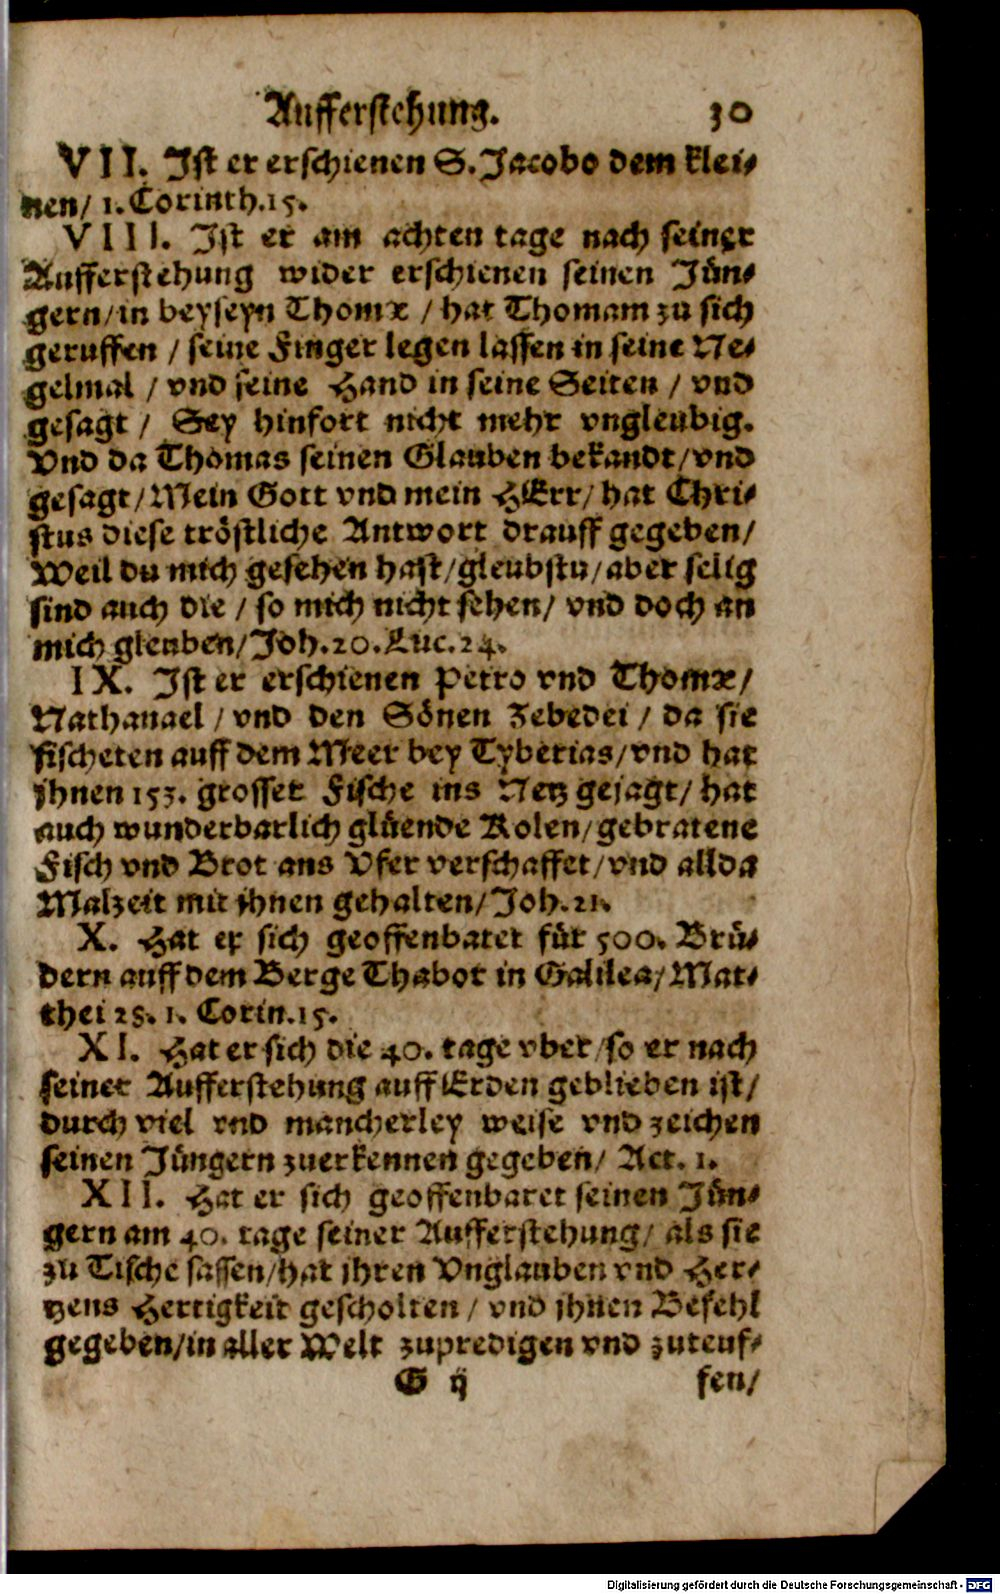 Aufferstehung. 30
VII. Ist er erschienen S. Jacobo dem klei-
nen/ 1. Corinth. 15.
VIII. Ist er am achten tage nach seiner
Aufferstehung wider erschienen seinen Jün-
gern/ in beyseyn Thomæ / hat Thomam zu sich
geruffen / seine Finger legen lassen in seine Ne-
gelmal / vnd seine Hand in seine Seiten / vnd
gesagt / Sey hinfort nicht mehr vngleubig.
Vnd da Thomas seinen Glauben bekandt/ vnd
gesagt/ Mein Gott vnd mein HErr/ hat Chri-
stus diese tröstliche Antwort drauff gegeben/
Weil du mich gesehen hast/ gleubstu/ aber selig
sind auch die / so mich nicht sehen/ vnd doch an
mich gleuben/ Joh. 20. Luc. 24.
IX. Ist er erschienen Petro vnd Thomæ/
Nathanael / vnd den Sönen Zebedei / da sie
fischeten auff dem Meer bey Tyberias/ vnd hat
jhnen 153. grosser Fische ins Netz gejagt/ hat
auch wunderbarlich glüende Kolen/ gebratene
Fisch vnd Brot ans Vfer verschaffet/ vnd allda
Malzeit mit jhnen gehalten/ Joh. 21.
X. Hat er sich geoffenbaret für 500. Brü-
dern auff dem Berge Thabor in Galilea/ Mat-
thei 28. 1. Corin. 15.
XI. Hat er sich die 40. tage vber/ so er nach
seiner Aufferstehung auff Erden geblieben ist/
durch viel vnd mancherley weise vnd zeichen
seinen Jüngern zuerkennen gegeben/ Act. 1.
XII. Hat er sich geoffenbaret seinen Jün-
gern am 40. tage seiner Aufferstehung/ als sie
zu Tische sassen/ hat jhren Vnglauben vnd Her-
tzens Hertigkeit gescholten / vnd jhnen Befehl
gegeben/ in aller Welt zupredigen vnd zuteuf-
G ij fen/
Digitalisierung gefördert durch die Deutsche Forschungsgemeinschaft - DFG